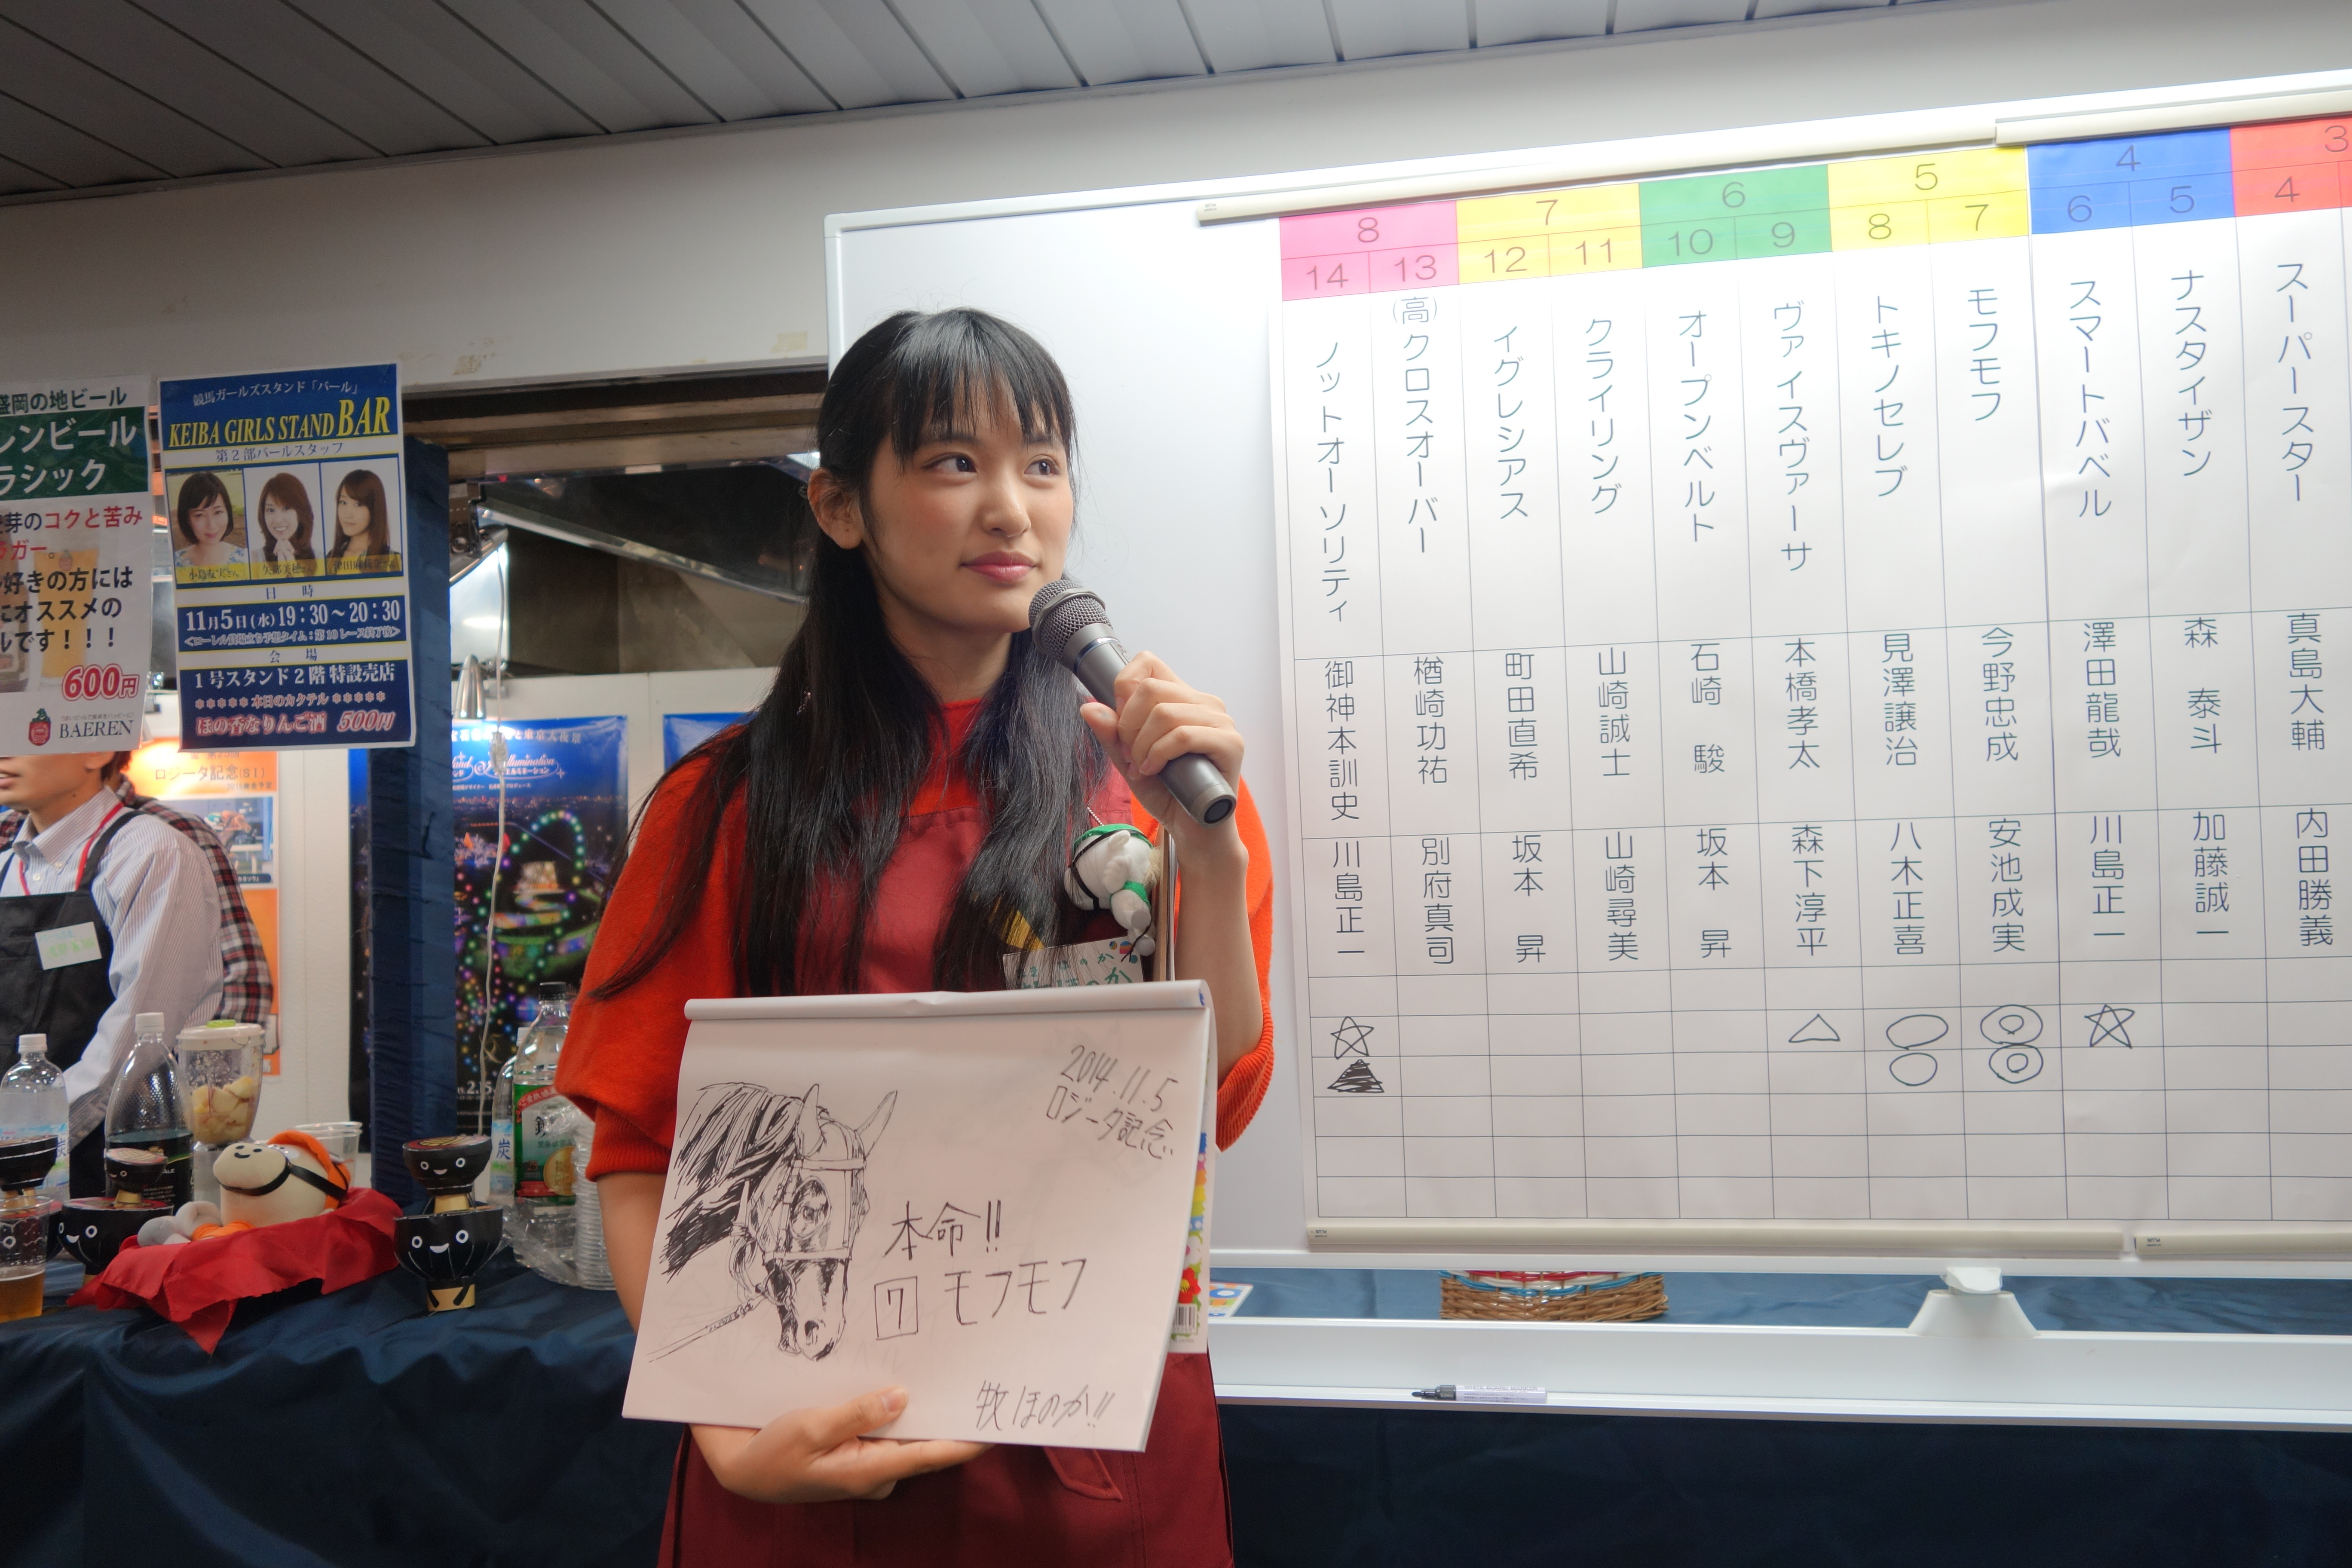 盛岡の地ビール
レンビール
ラシック
芽のコクと苦み
ガー。
好きの方には
にオススメの
ルです！！！
600円
BAEREN
競馬ガールズスタンド「バール」
KEIBA GIRLS STAND BAR
第2部バールスタッフ
日時
11月5日(水)19：30～20：30
会場
1号スタンド2階 特設売店
＊＊＊＊＊本日のカクテル＊＊＊＊＊
ほの香なりんご酒 500円
ロジータ記念(S1)
illumination
2014.11.5
ロジータ記念
本命!!
7 モフモフ
牧ほのか!!
8 7 6 5 4 3
14 13 12 11 10 9 8 7 6 5 4
ノットオーソリティ
御神本訓史
川島正一
(高)クロスオーバー
楢崎功祐
別府真司
イグレシアス
町田直希
坂本 昇
クライリング
山崎誠士
山崎尋美
オープンベルト
石崎 駿
坂本 昇
ヴァイスヴァーサ
本橋孝太
森下淳平
トキノセレブ
見澤譲治
八木正喜
モフモフ
今野忠成
安池成実
スマートバベル
澤田龍哉
川島正一
ナスタイザン
森 泰斗
加藤誠一
スーパースター
真島大輔
内田勝義
☆ △ ○ ◎ ☆
▲ ○ ◎